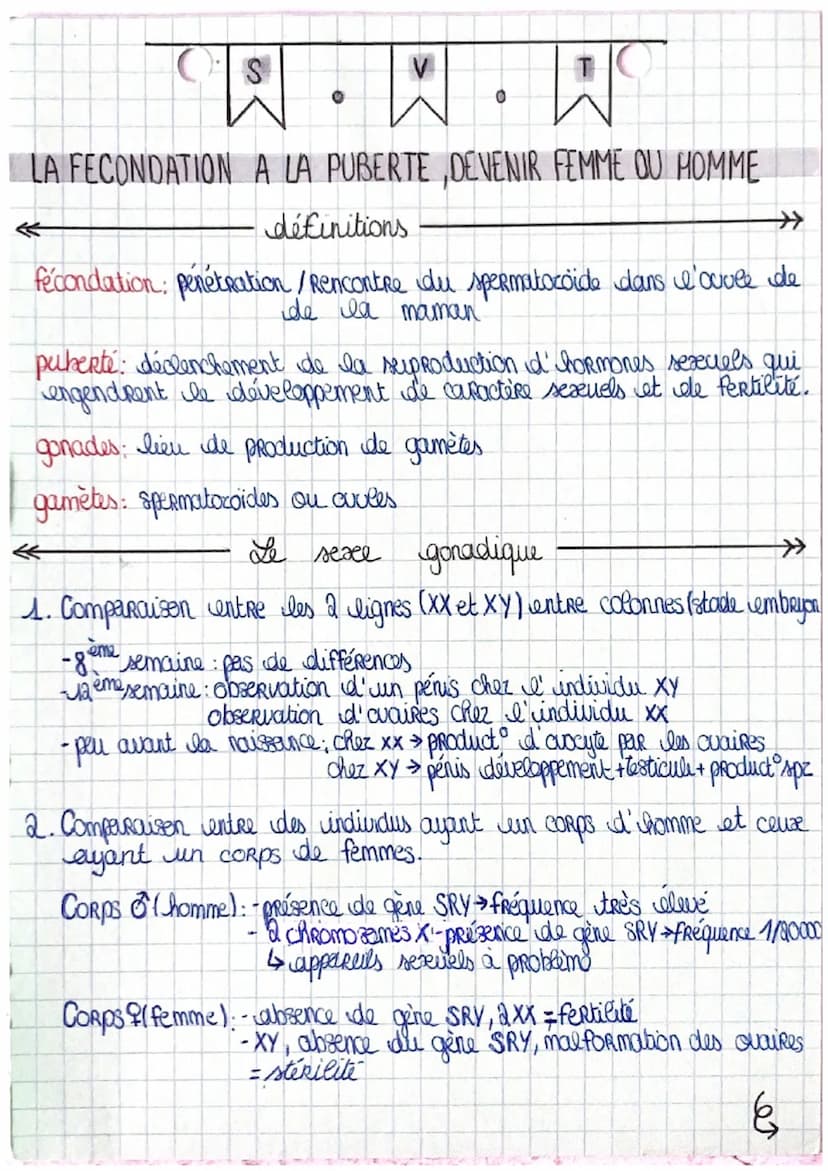 S . V . T
LA FECONDATION A LA PUBERTE, DEVENIR FEMME OU HOMME
définitions
fécondation: pénétration / Rencontre du spermatozoïde dans l'ovule de
de la maman
puberté: déclenchement de la reproduction d'hormones sexuels qui
engendrent le développement de caractère sexuels et de fertilité.
gonades: lieu de production de gamètes
gamètes: spermatozoïdes ou ovules
Le sexe gonadique
1. Comparaison entre les 2 lignes (XX et XY) entre colonnes (stade embryon
-8ème semaine : pas de différences
-12ème semaine : observation d'un pénis chez l'individu XY
observation d'ovaires chez l'individu XX
- peu avant la naissance: chez XX → product° d'ovocyte par les ovaires
chez XY → pénis développement + testicule + product° spz
2. Comparaison entre des individus ayant un corps d'homme et ceux
ayant un corps de femmes.
Corps ♂ (homme): - présence de gène SRY → fréquence très élevé
- 2 chromosomes X - présence de gène SRY → fréquence 1/20000
↳ appareils sexuels à problème
Corps ♀ (femme): - absence de gène SRY, 2XX = fertilité
- XY, absence du gène SRY, malformation des ovaires
= stérilité